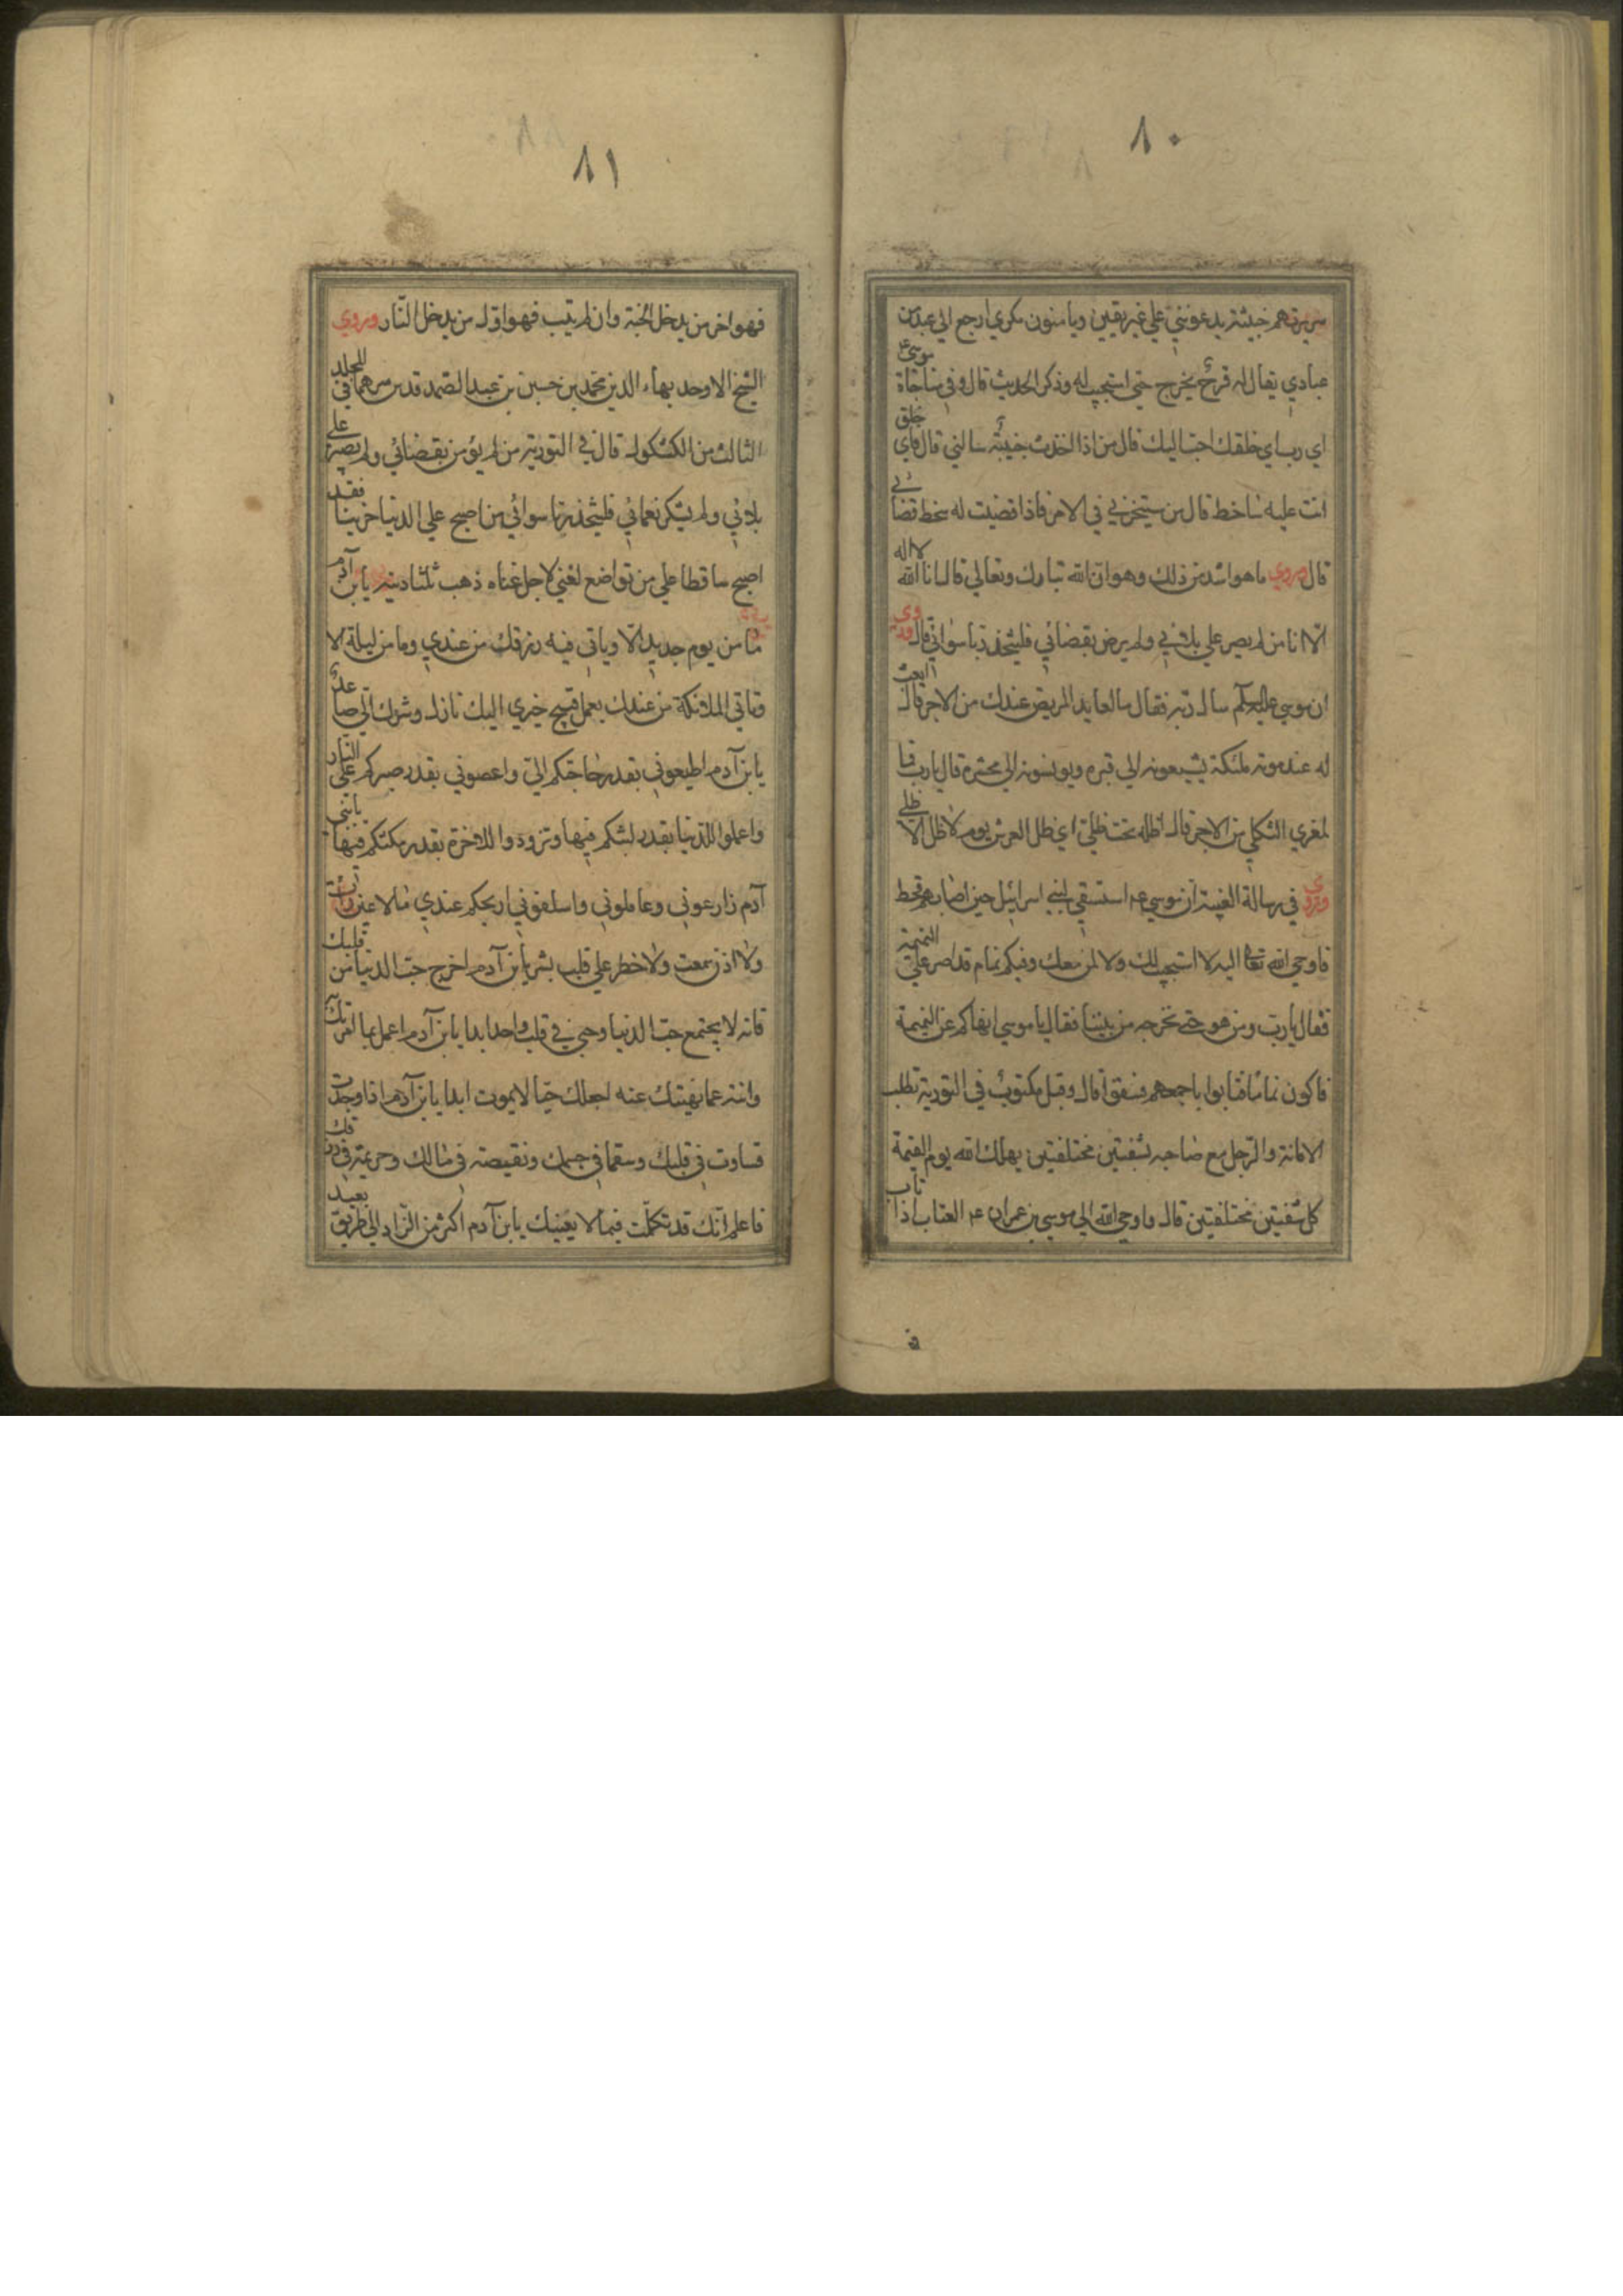 ٨٠
سريرتهم خبيثة يدعونني علي غير يقين ويامنون مكري ارجع الي عبد من
عبادي يقال له فرخ يخرج حتي استجيب له وذكر الحديث قال وفي مناجاة موسي ع
اي رب اي خلقك احب اليك قال من اذا اخذت حبيبه سالني قال فاي خلق
انت عليه ساخط قال من يستخيرني في الامر فاذا قضيت له سخط قضائي
قال وروي ما هو اشد من ذلك وهو ان الله تبارك وتعالي قال انا الله لا اله
الا انا من لم يصبر علي بلائي ولم يرض بقضائي فليتخذ ربا سوائي قال وروي
ان موسي عليه السلم سال ربه فقال ما لعايد المريض عندك من الاجر قال ابعث
له عند موته ملئكة يشيعونه الي قبره ويونسونه الي محشره قال يا رب فما
لمعزي الثكلي من الاجر قال اظله تحت ظلي اي ظل العرش يوم لا ظل الا ظلي
وروي في رسالة الغيبة ان موسي ع استسقي لبني اسرائيل حين اصابهم قحط
فاوحي الله تعا اليه لا استجيب لك ولا لمن معك وفيكم نمام قد اصر علي النميمة
فقال يا رب ومن هو حتي نخرجه من بيننا فقال يا موسي انهاكم عن النميمة
فاكون نماما فتابوا باجمعهم فسقوا قال وقيل مكتوب في التورية تطلب
الامانة والرجل مع صاحبه بشفتين مختلفتين يهلك الله يوم القيمة
كل شفتين مختلفتين قال واوحي الله الي موسي بن عمران ع المغتاب اذا تاب
٨١
فهو اخر من يدخل الجنة وان لم يتب فهو اول من يدخل النار وروي
الشيخ الاوحد بهاء الدين محمد بن حسين بن عبد الصمد قدس سرهما في المجلد
الثالث من الكشكول قال في التورية من لم يؤمن بقضائي ولم يصبر علي
بلائي ولم يشكر نعمائي فليتخذ ربا سوائي من اصبح علي الدنيا حزينا فقد
اصبح ساقطا علي من تواضع لغني لاجل غناه ذهب ثلثا دينه يا بن آدم
ما من يوم جديد الا وياتي فيه رزقك من عندي وما من ليلة الا
وتاتي الملائكة من عندك بعمل قبيح خيري اليك نازل وشرك الي صاعد
يا بن آدم اطيعوني بقدر حاجتكم الي واعصوني بقدر صبركم علي النار
واعملوا للدنيا بقدر لبثكم فيها وتزودوا للاخرة بقدر مكثكم فيها يا بني
آدم زارعوني وعاملوني واسلفوني اربحكم عندي ما لا عين رات
ولا اذن سمعت ولا خطر علي قلب بشر يا بن آدم اخرج حب الدنيا من قلبك
فانه لا يجتمع حب الدنيا وحبي في قلب واحد ابدا يا بن آدم اعمل بما امرتك
وانته عما نهيتك عنه اجعلك حيا لا يموت ابدا يا بن آدم اذا وجدت
قساوت في قلبك وسقما في جسمك ونقيصة في مالك وحريمة في رزقك
فاعلم انك قد تكلمت فيما لا يعنيك يا بن آدم اكثر من الزاد الي طريق بعيد